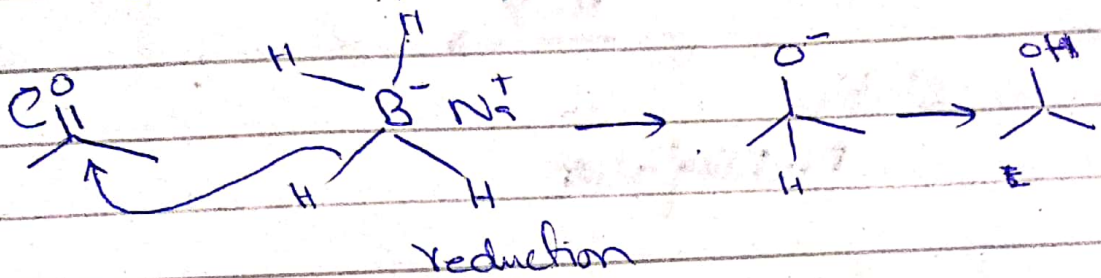 O H H B⁻ Na⁺ H H O⁻ H OH E
reduction